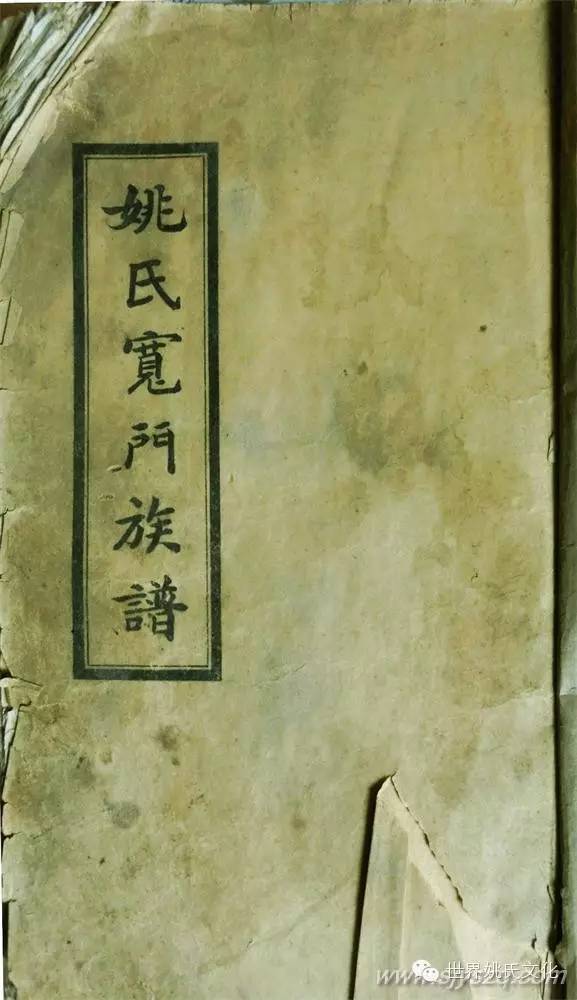 姚氏寬門族譜
世界姚氏文化